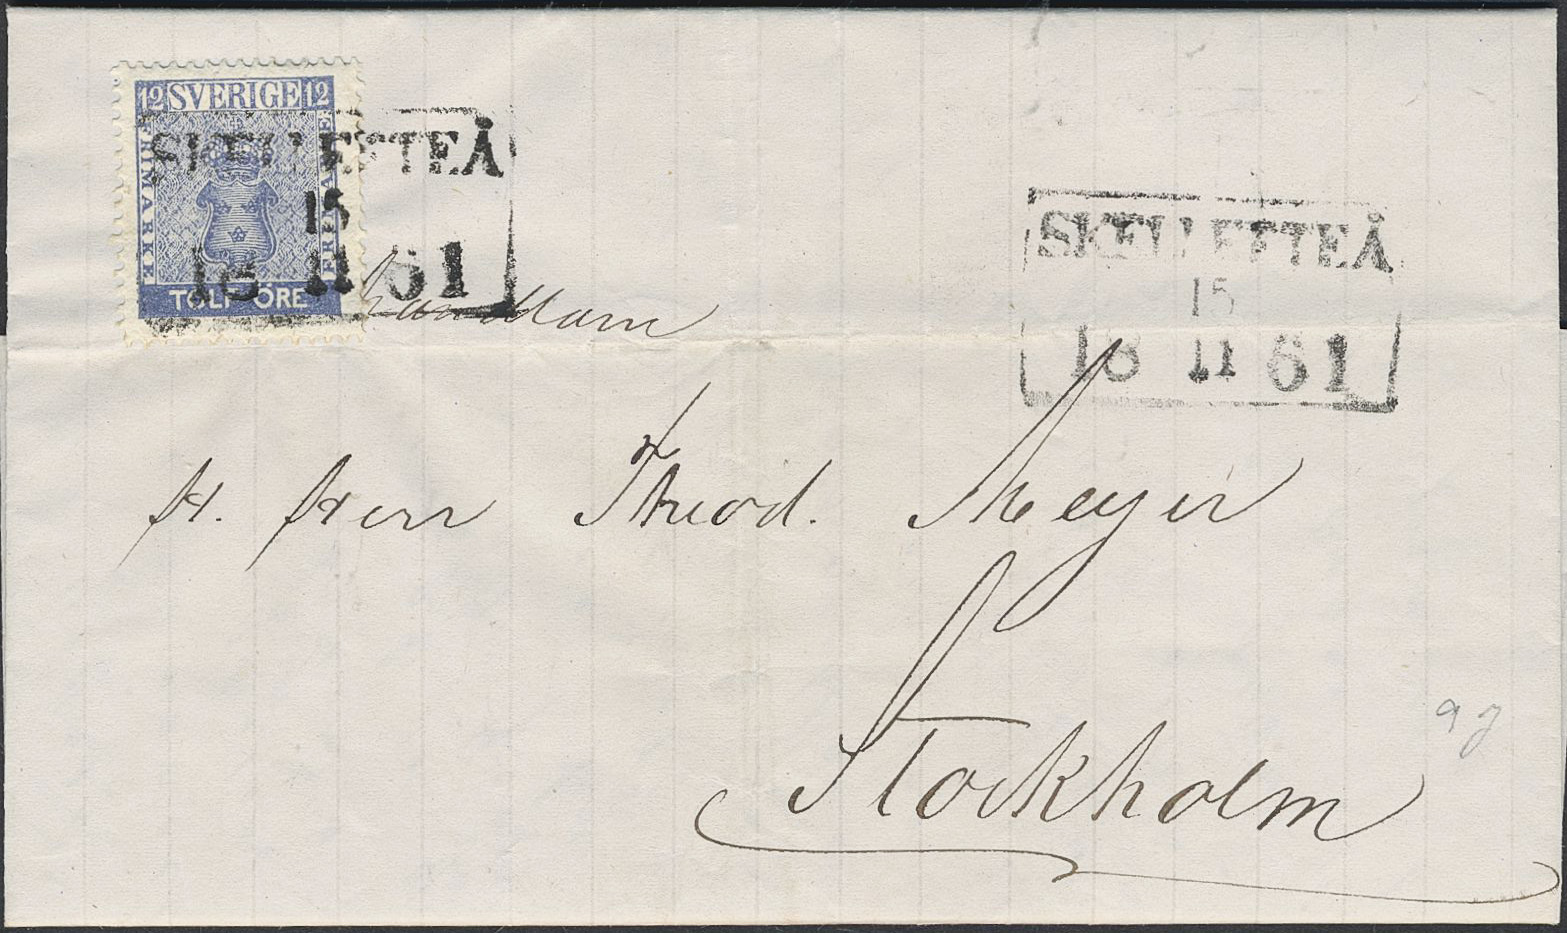 12 SVERIGE 12
FRIMÄRKE
FRIMÄRKE
TOLF ÖRE
SKELLEFTEÅ
15
18 11 61
SKELLEFTEÅ
15
18 11 61
H. Herr Theod. Meyer
Stockholm